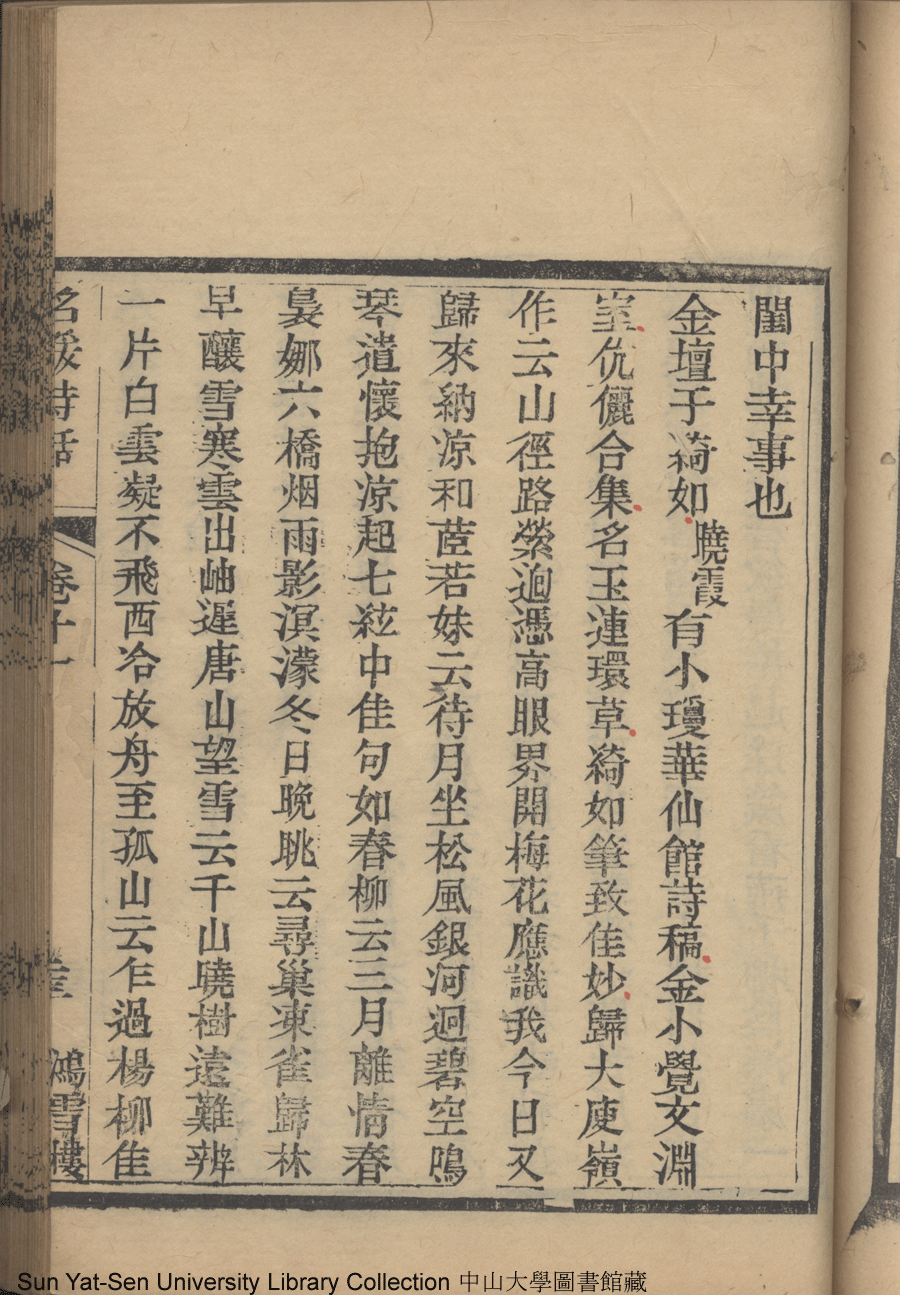 閨中幸事也
金壇于綺如曉霞有小瓊華仙館詩稿金小覺文淵
室伉儷合集名玉連環草綺如筆致佳妙歸大庾嶺
作云山徑路縈迴憑高眼界開梅花應識我今日又
歸來納涼和茞若妹云待月坐松風銀河迴碧空鳴
琴遣懷抱涼起七絃中佳句如春柳云三月離情春
裊娜六橋烟雨影溟濛冬日晚眺云尋巢凍雀歸林
早釀雪寒雲出岫遲唐山望雪云千山曉樹遠難辨
一片白雲凝不飛西泠放舟至孤山云乍過楊柳佳
名媛詩話 卷十一 鴻雪樓
Sun Yat-Sen University Library Collection 中山大學圖書館藏